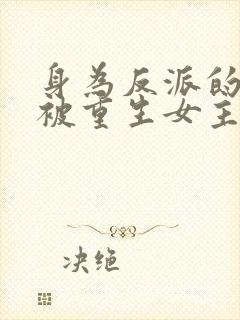 身為反派的
被重生女主
决绝